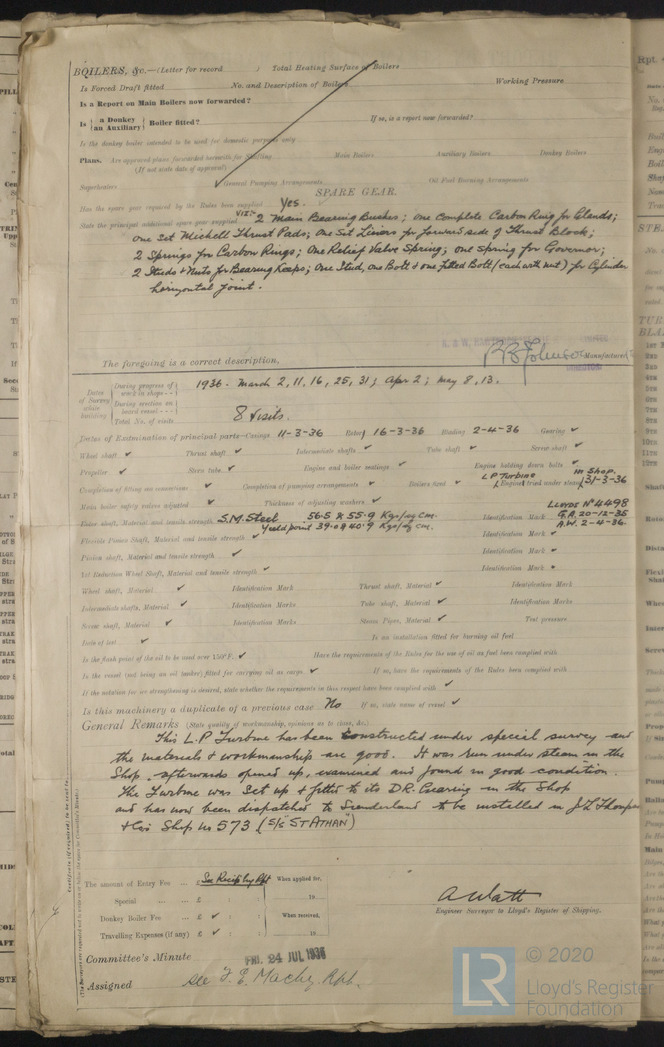 BOILERS, &c.—(Letter for record ) Total Heating Surface of Boilers
Is Forced Draft fitted No. and Description of Boilers Working Pressure
Is a Report on Main Boilers now forwarded?
Is { a Donkey / an Auxiliary } Boiler fitted? If so, is a report now forwarded?
Is the donkey boiler intended to be used for domestic purposes only
Plans. Are approved plans forwarded herewith for Shafting Main Boilers Auxiliary Boilers Donkey Boilers
(If not state date of approval)
Superheaters General Pumping Arrangements Oil Fuel Burning Arrangements
SPARE GEAR.
Has the spare gear required by the Rules been supplied Yes.
State the principal additional spare gear supplied VIZ:- 2 Main Bearing Bushes; one complete Carbon Ring for Glands;
one Set Michell Thrust Pads; one Set Liners for forward side of Thrust Block;
2 Springs for Carbon Rings; one Relief Valve Spring; one spring for Governor;
2 Studs & Nuts for Bearing Keeps; one Stud, one Bolt & one fitted Bolt (each with nut) for Cylinder
horizontal joint.
The foregoing is a correct description,
Manufacturer
Dates of Survey while building
During progress of work in shops - - 1936. March 2, 11, 16, 25, 31; Apr 2; May 8, 13.
During erection on board vessel - - -
Total No. of visits 8 Visits.
Dates of Examination of principal parts—Casings 11-3-36 Rotor 16-3-36 Blading 2-4-36 Gearing ✓
Wheel shaft ✓ Thrust shaft ✓ Intermediate shafts ✓ Tube shaft ✓ Screw shaft ✓
Propeller ✓ Stern tube ✓ Engine and boiler seatings ✓ Engine holding down bolts ✓
Completion of fitting sea connections ✓ Completion of pumping arrangements ✓ Boilers fixed ✓ LP Turbine Engines tried under steam in Shop. 31-3-36
Main boiler safety valves adjusted ✓ Thickness of adjusting washers ✓
Rotor shaft, Material and tensile strength S.M. Steel 56.5 & 55.9 Kgs/sq cm. Identification Mark LLOYDS No 4498
Yield point 39.0 & 40.9 Kgs/sq cm. G.A. 20-12-35
A.W. 2-4-36.
Flexible Pinion Shaft, Material and tensile strength ✓ Identification Mark ✓
Pinion shaft, Material and tensile strength ✓ Identification Mark ✓
1st Reduction Wheel Shaft, Material and tensile strength ✓ Identification Mark ✓
Wheel shaft, Material ✓ Identification Mark Thrust shaft, Material ✓ Identification Mark
Intermediate shafts, Material ✓ Identification Marks Tube shaft, Material ✓ Identification Marks
Screw shaft, Material ✓ Identification Marks Steam Pipes, Material ✓ Test pressure
Date of test ✓ Is an installation fitted for burning oil fuel
Is the flash point of the oil to be used over 150°F. ✓ Have the requirements of the Rules for the use of oil as fuel been complied with
Is the vessel (not being an oil tanker) fitted for carrying oil as cargo ✓ If so, have the requirements of the Rules been complied with
If the notation for ice strengthening is desired, state whether the requirements in this respect have been complied with ✓
Is this machinery a duplicate of a previous case No If so, state name of vessel ✓
General Remarks (State quality of workmanship, opinions as to class, &c.)
This L.P. Turbine has been constructed under special survey and
the materials & workmanship are good. It was run under steam in the
Shop, afterwards opened up, examined and found in good condition.
The Turbine was set up & fitted to its D.R. Gearing in the Shop
and has now been dispatched to Sunderland to be installed in J L Thompson
& Co's Ship No 573 (S/S "ST ATHAN")
The amount of Entry Fee ... £ See Receipt by Rpt When applied for,
Special ... ... £ : : 19
Donkey Boiler Fee ... £ ✓ : : When received,
Travelling Expenses (if any) £ ✓ : : 19
A Watt
Engineer Surveyor to Lloyd's Register of Shipping.
Committee's Minute FRI. 24 JUL 1936
Assigned see F. E. Machy. Rpt.
© 2020
LR Lloyd's Register
Foundation